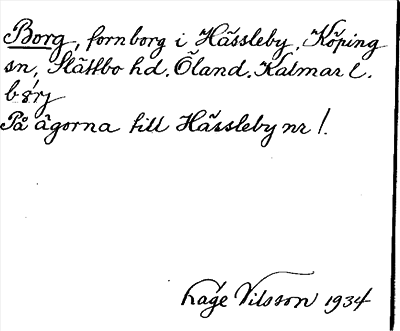 Borg, fornborg i Hässleby, Köping
sn, Slättbo hd. Öland. Kalmar l.
På ägorna till Hässleby nr 1.
Nilsson 1934